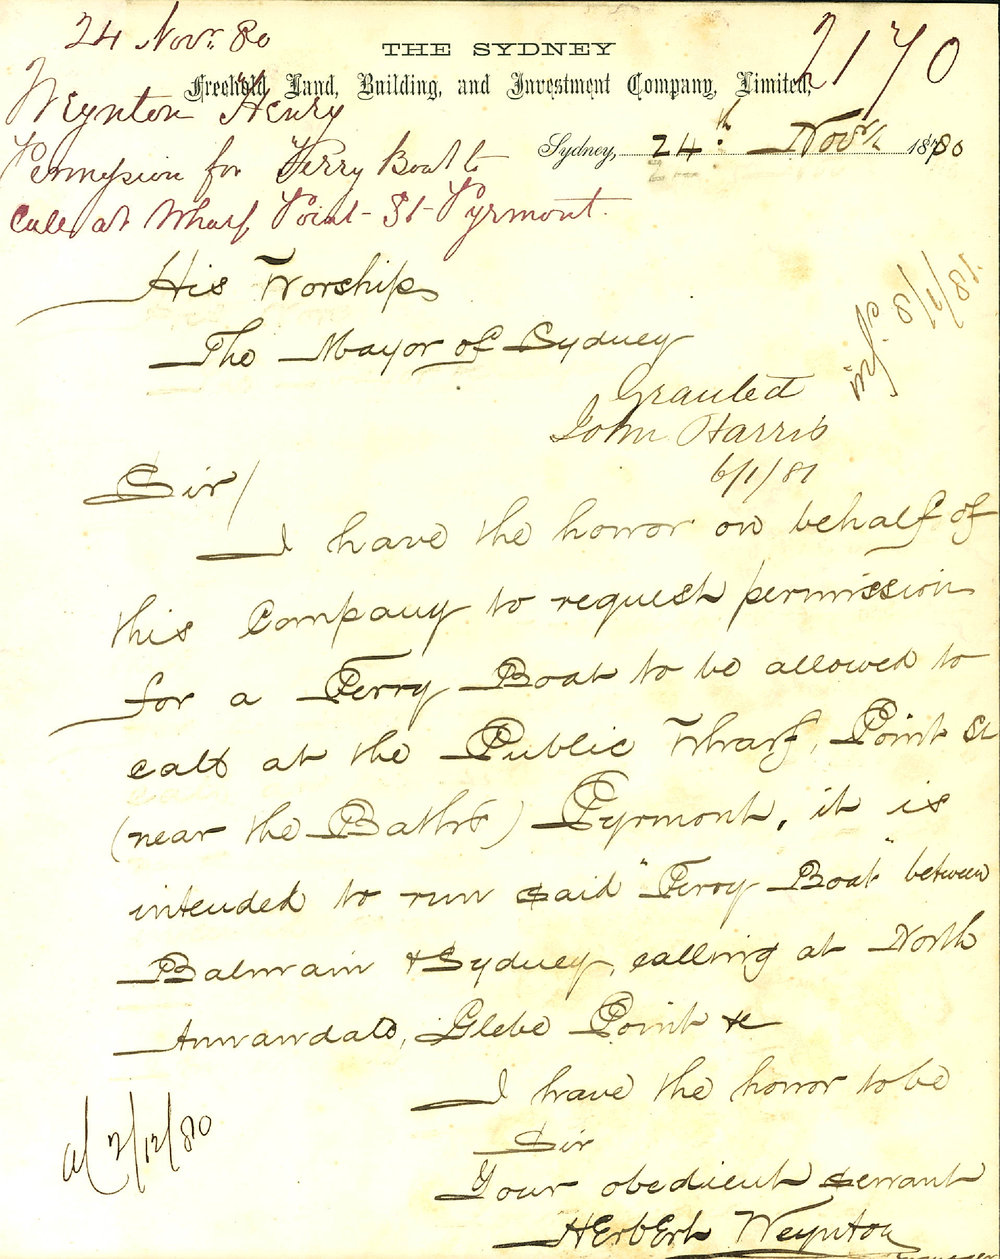 24 Novr. 80
2170
THE SYDNEY
Freehold Land, Building, and Investment Company, Limited,
Weynton Henry
Permission for Ferry Boat to
call at Wharf Point St Pyrmont.
Sydney, 24th Novr 1880
His Worship
The Mayor of Sydney
Granted
John Harris
6/1/81
inf. 8/1/81.
Sir/
I have the honor on behalf of
this Company to request permission
for a Ferry Boat to be allowed to
call at the Public Wharf, Point St
(near the Baths) Pyrmont, it is
intended to run said "Ferry Boat" between
Balmain & Sydney, calling at North
Annandale, Glebe Point &c
I have the honor to be
Sir
Your obedient servant
Herbert Weynton
2/12/80